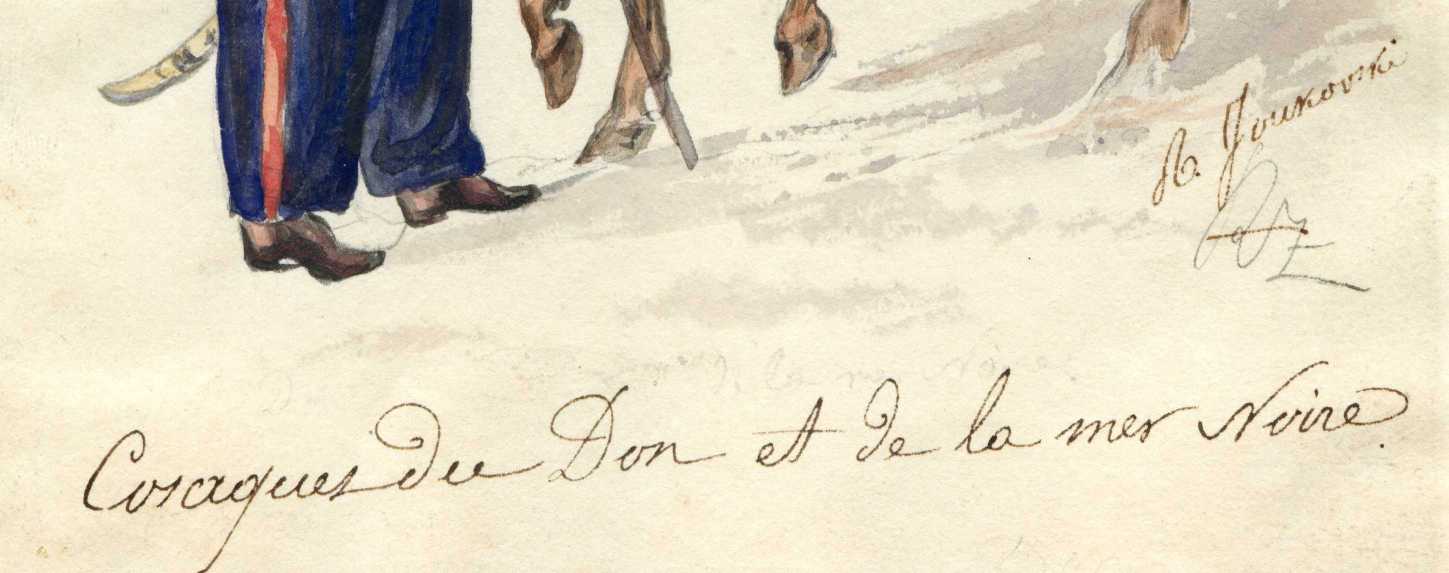 R. Joukovski
Cosaques du Don et de la mer Noire.